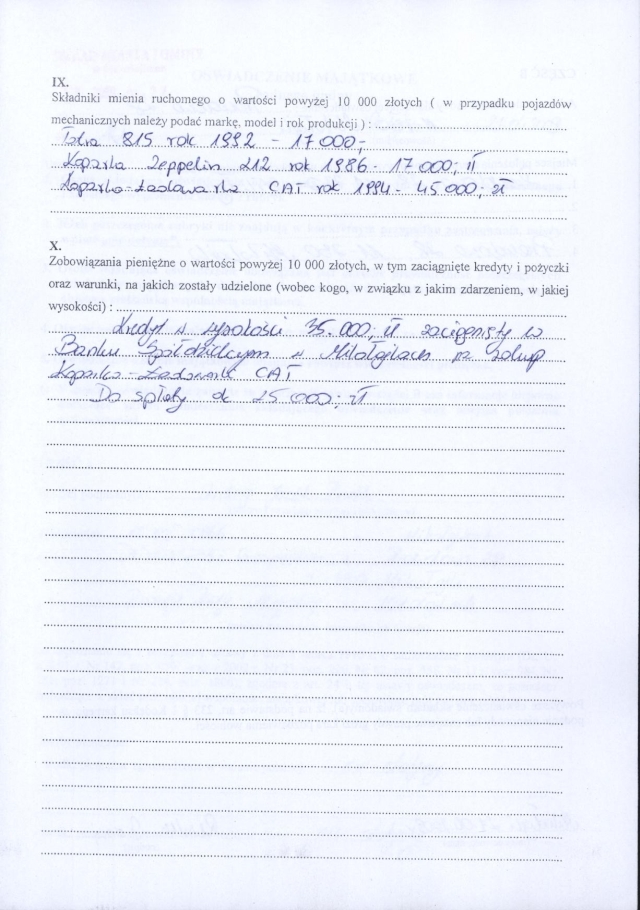 IX.
Składniki mienia ruchomego o wartości powyżej 10 000 złotych ( w przypadku pojazdów
mechanicznych należy podać markę, model i rok produkcji ) :
815 rok 1992 - 17 000,-
Koparka Zeppelin 212 rok 1986 - 17 000,- zł
Koparko-Ładowarka CAT rok 1994 - 45 000,- zł
X.
Zobowiązania pieniężne o wartości powyżej 10 000 złotych, w tym zaciągnięte kredyty i pożyczki
oraz warunki, na jakich zostały udzielone (wobec kogo, w związku z jakim zdarzeniem, w jakiej
wysokości) :
Kredyt w wysokości 35.000,- zł zaciągnięty w
Banku Spółdzielczym w na zakup
Koparko-Ładowarki CAT
Do spłaty ok 25 000,- zł